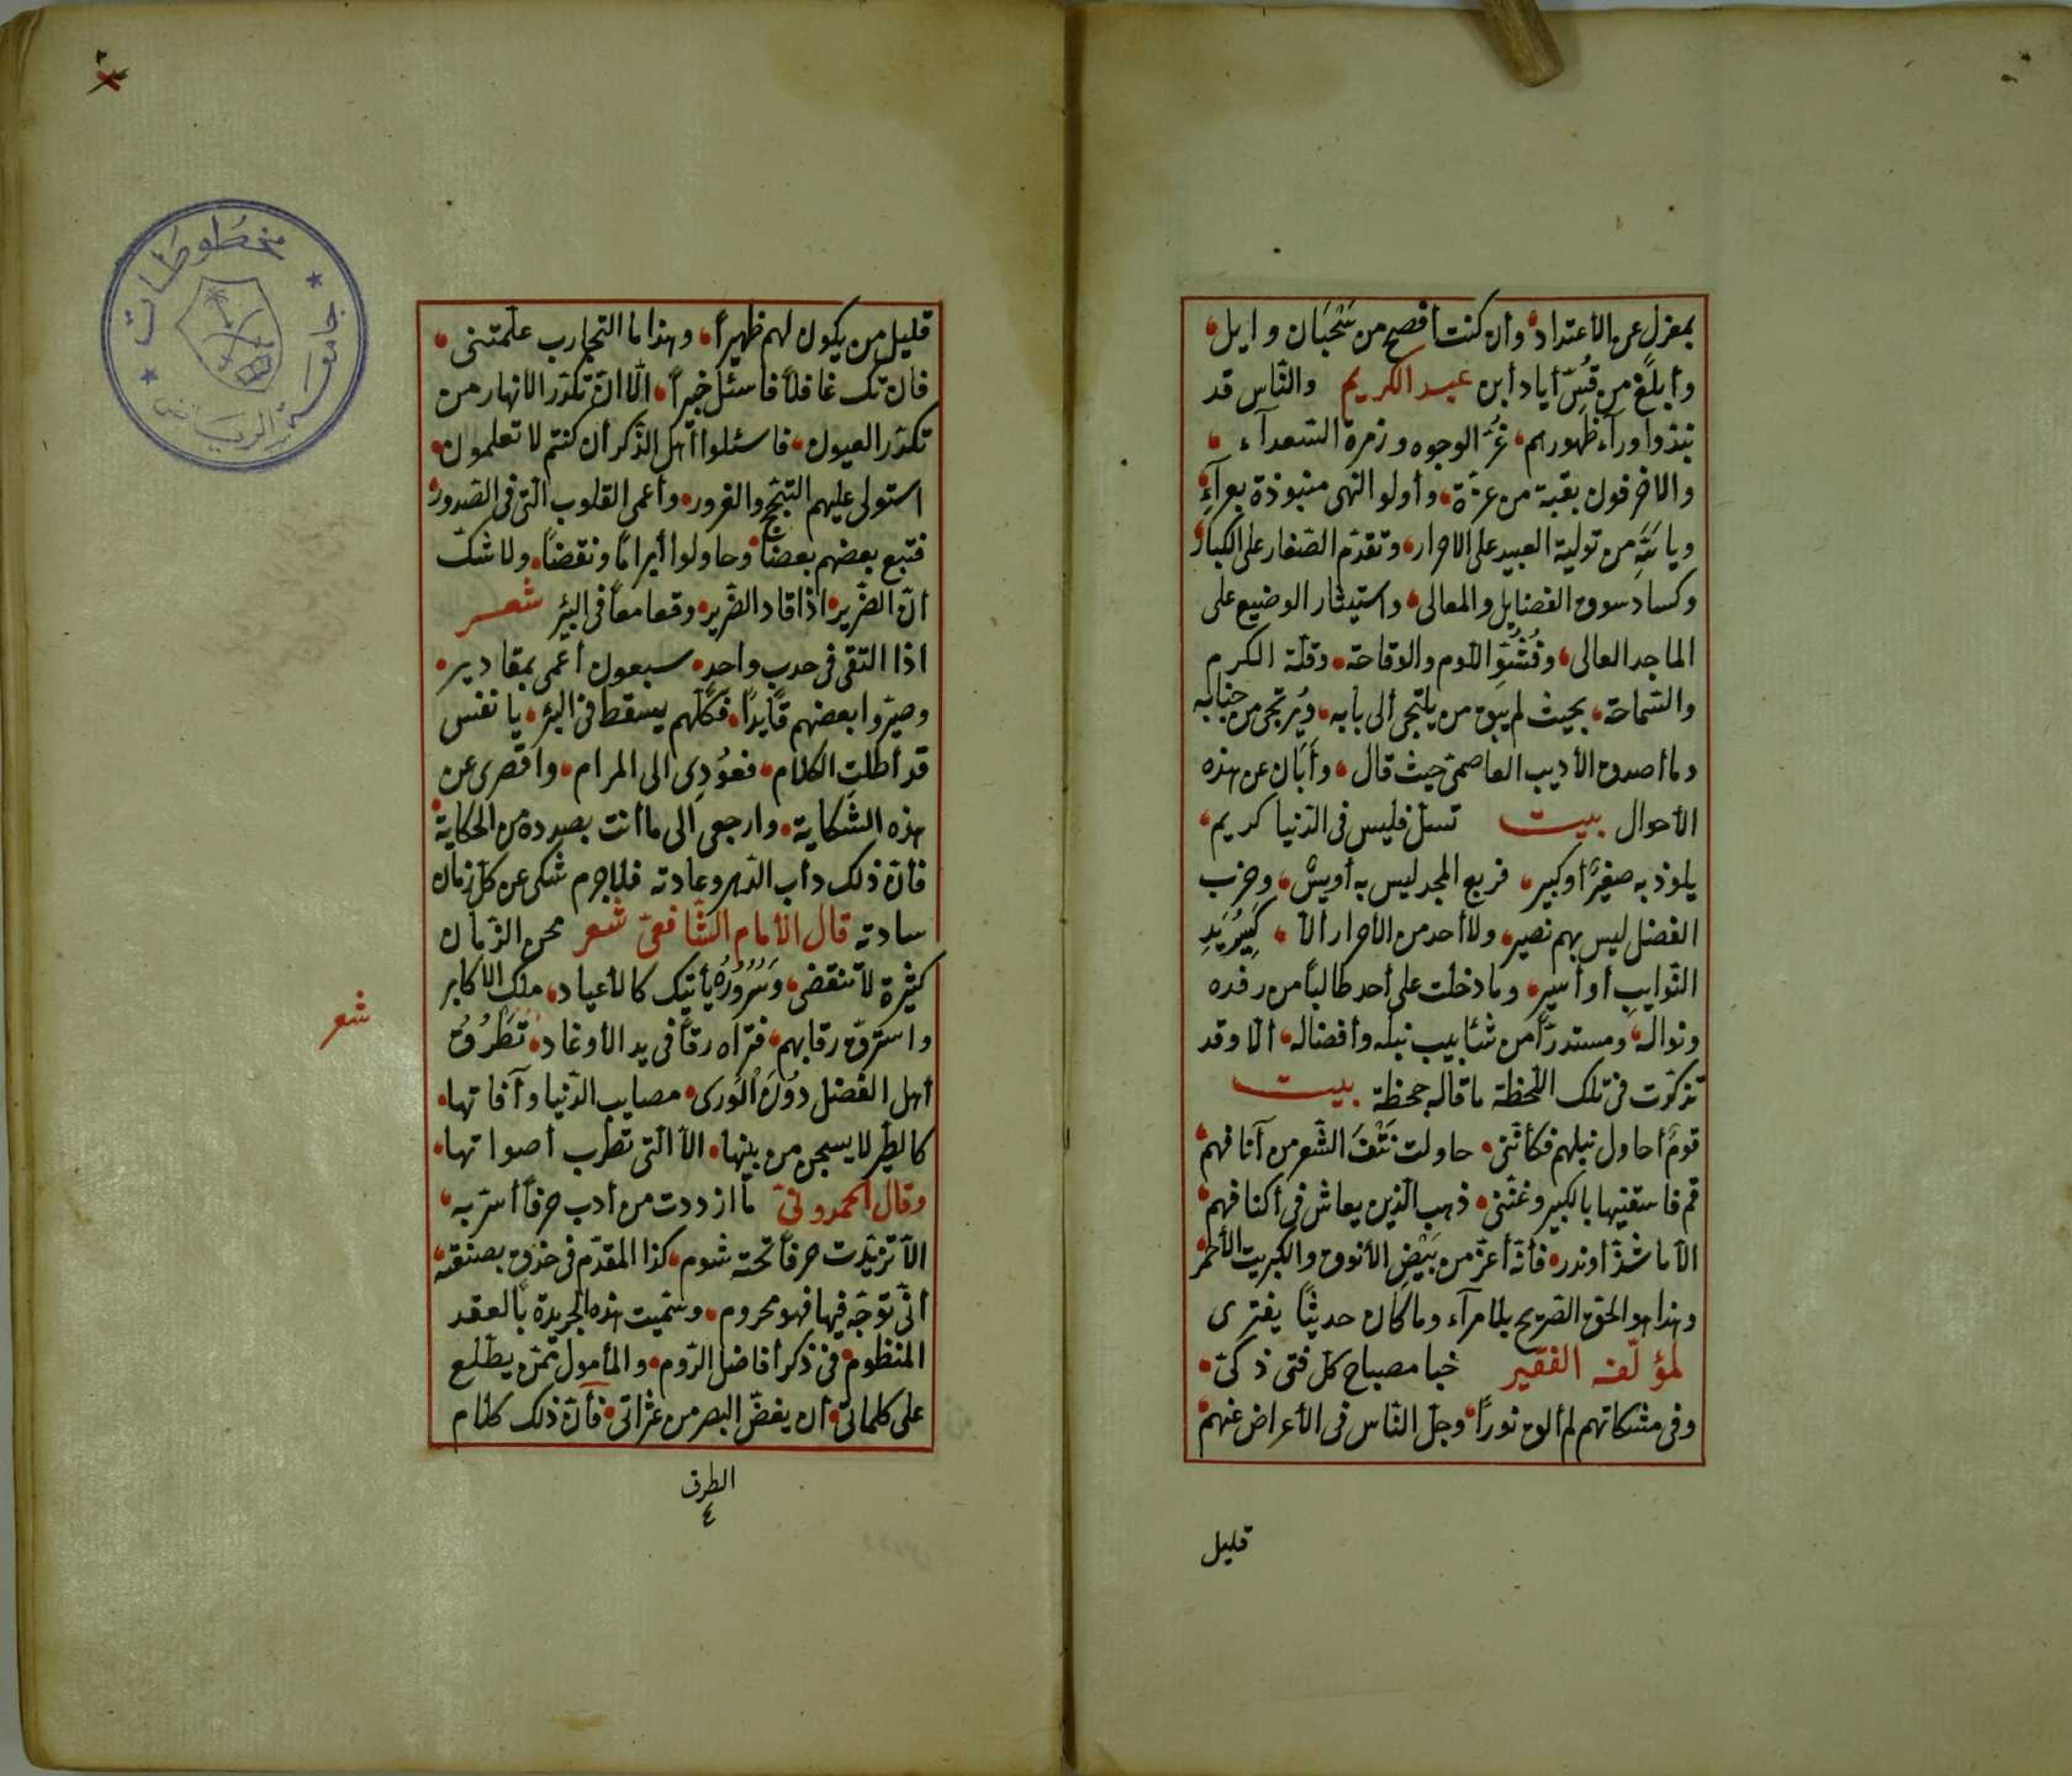 بمعزل عن الأعتداد وأن كنت أفصح من سَحْبَان وايل
وأبلغ من قُسّ أياد أبن عبد الكريم والنّاس قد
نبذوا ورآء ظهورهم غُرّ الوجوه وزمرة السّعدآء
والاخرقون بقبة من عزّة وأولو النهى منبوذة بعرآءِ
ويا من تولية العبيد على الاحرار وتقدّم الصّغار على الكبار
وكساد سوق الفضايل والمعالى واستيثار الوضيع على
الماجد العالى وفُشُوّ اللّوم والوقاحة وقلّة الكرم
والسّماحة بحيث لم يبق من يلتجى ألى بابه ويُرتجى من جنابه
وما أصدق الأديب العاصمىّ حيث قال وأبان عن هذه
الأحوال بيت تسلّ فليس فى الدّنيا كريم
يلوذ به صغيرٌ أو كبير فربع المجد ليس به أويسٌ وحزب
الفضل ليس بهم نصير ولا أحد من الأحرار ألّا كسيرُ يَدِ
النّوايبِ أو أسير وما دخلت على أحد طالبًا من رفده
ونواله ومستدرًّا من شئابيب نبله وأفضاله ألّا وقد
تذكّرت فى تلك اللّحظة ما قاله جحظة بيت
قومٌ أحاول نيلهم فكأنّنى حاولت نَتْفَ الشّعر من آنافهم
قم فاسقنيها بالكبير وغنّنى ذهب الّذين يعاش فى أكنافهم
الّا ما شذّ أو ندر فأنّه أعزّ من بَيْضِ الأنوق والكبريت الأحمر
وهذا هو الحق الصّريح بلا مرآء وما كان حديثًا يفترى
لمؤلّفه الفقير خبا مصباح كل فتى ذكىّ
وفى مشكاتهم لم ألق نورًا وجلّ النّاس فى الأعراض عنهم
قليل
قليل من يكون لهم ظهيرًا وهذا ما التجارب علّمتنى
فان تك غافلًا فاسئل خبيرًا الّا انّ تكدّر الانهار من
تكدّر العيون فاسئلوا أهل الذّكر أن كنتم لا تعلمون
استولى عليهم التبجّح والغرور وأعمى القلوب الّتى فى الصّدور
فتبع بعضهم بعضًا وحاولوا أبرامًا ونقضًا ولا شكّ
انّ الضّرير اذا قاد الضّرير وقعا معًا فى البئر شعر
اذا التقى فى حدب واحدٍ سبعون أعمى بمقادير
وصيّروا بعضهم قايدًا فكلّهم يسقط فى البئر يا نفس
قد أطلتِ الكلام فعُودِى الى المرام واقصرى عن
هذه الشّكاية وارجعى ألى ما أنت بصدده من الحكاية
فأنّ ذلك دأب الدّهر وعادته فلا جرم شكى عن كلّ زمان
سادته قال الأمام الشّافعىّ شعر محن الزّمان
كثيرة لا تنقضى وَسُرُورُهُ يأتيك كالأعياد ملك الاكابر
واسترقّ رقابهم فتراه رقًّا فى يد الأوغاد تَطْرُقُ
شعر
أهل الفضل دُونَ الْورى مصايب الدّنيا وآفاتها
كالطّير لا يسجن من بينها الّا الّتى تطرب أصواتها
وقال الحمدونىّ ما ازددت من أدب حرفًا أسرّ به
الّا تزيّدت حرفًا تحته شوم كذا المقدّم فى حذق بصنعته
أنّى توجّه فيها فهو محروم وسمّيت هذه الجريدة بالعقد
المنظوم فى ذكر أفاضل الرّوم والمأمول ممّن يطّلع
على كلماتى أن يغضّ البصر من عثراتى فأنّ ذلك كلام
الطرف
٤
مخطوطات
جامعة الرياض